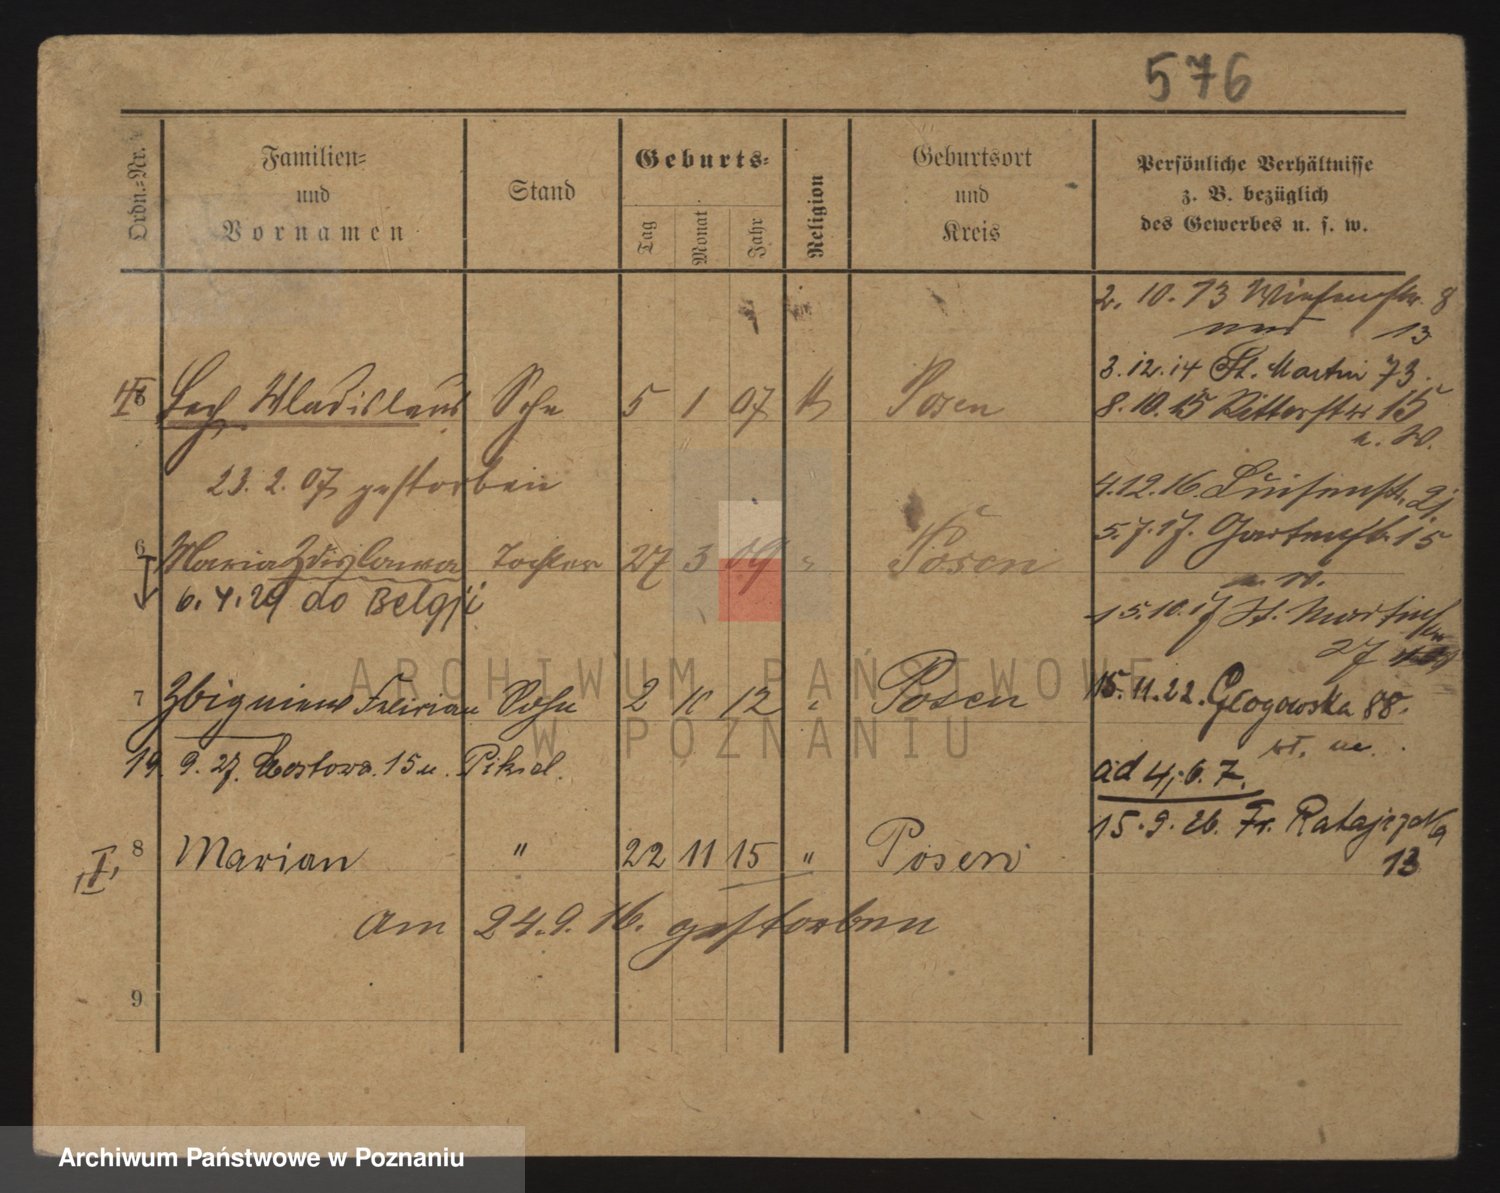 576
Ordn.=Nr.
Familien=
und
Vornamen
Stand
Geburts=
Tag
Monat
Jahr
Religion
Geburtsort
und
Kreis
Persönliche Verhältnisse
z. B. bezüglich
des Gewerbes u. s. w.
2. 10. 13 Wiesenstr. 8
13
3. 12. 14 St. Martin 73.
Lech Wladislaus Sohn 5 1 07 Posen
8. 10. 15 Ritterstr 15
23. 2. 07 gestorben
4. 12. 16. Luisenstr.
6 Maria Zdislawa Tochter 27 3 09 " Posen
5. 7. 17. Gartenstr. 15
6. 4. 29 do Belgji
15. 10. 17 St. Martin
27
7 Zbigniew Sohn 2 10 12 " Posen
15. 11. 22. Głogowska 88.
19. 9. 27. 15 u.
ad 4, 6. 7.
15. 9. 26. Fr. Ratajczaka
13
8 Marian " 22 11 15 " Posen
am 24. 9. 16. gestorben
9
ARCHIWUM PAŃSTWOWE
W POZNANIU
Archiwum Państwowe w Poznaniu